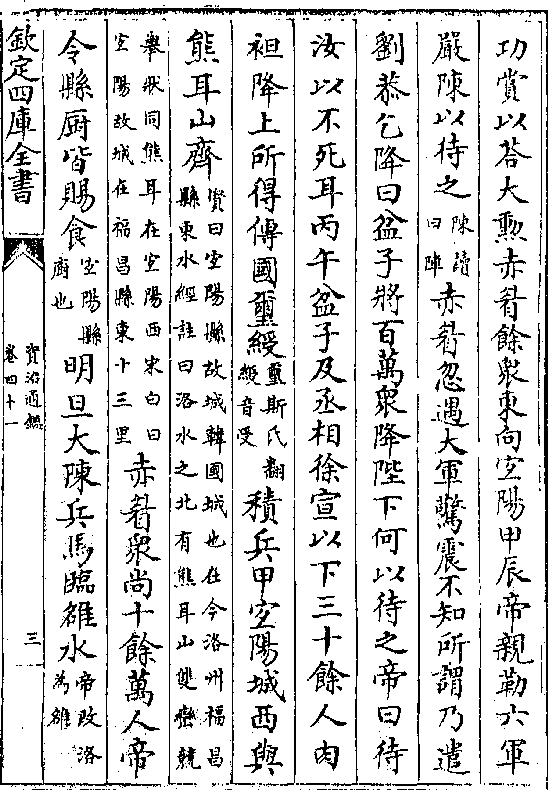 功賞以荅大勲赤眉餘衆東向宜陽甲辰帝親勒六軍
嚴陳以待之陳讀曰陣赤眉忽遇大軍驚震不知所謂乃遣
劉恭乞降曰盆子將百萬衆降陛下何以待之帝曰待
汝以不死耳丙午盆子及丞相徐宣以下三十餘人肉
袒降上所得傳國璽綬璽斯氏翻綬音受積兵甲宜陽城西與
熊耳山齊賢曰宜陽縣故城韓國城也在今洛州福昌縣東水經註曰洛水之北有熊耳山雙巒競
舉狀同熊耳在宜陽西宋白曰宜陽故城在福昌縣東十三里赤眉衆尚十餘萬人帝
令縣厨皆賜食宜陽縣厨也明旦大陳兵馬臨雒水帝改洛為雒
欽定四庫全書
資治通鑑
卷四十一
三